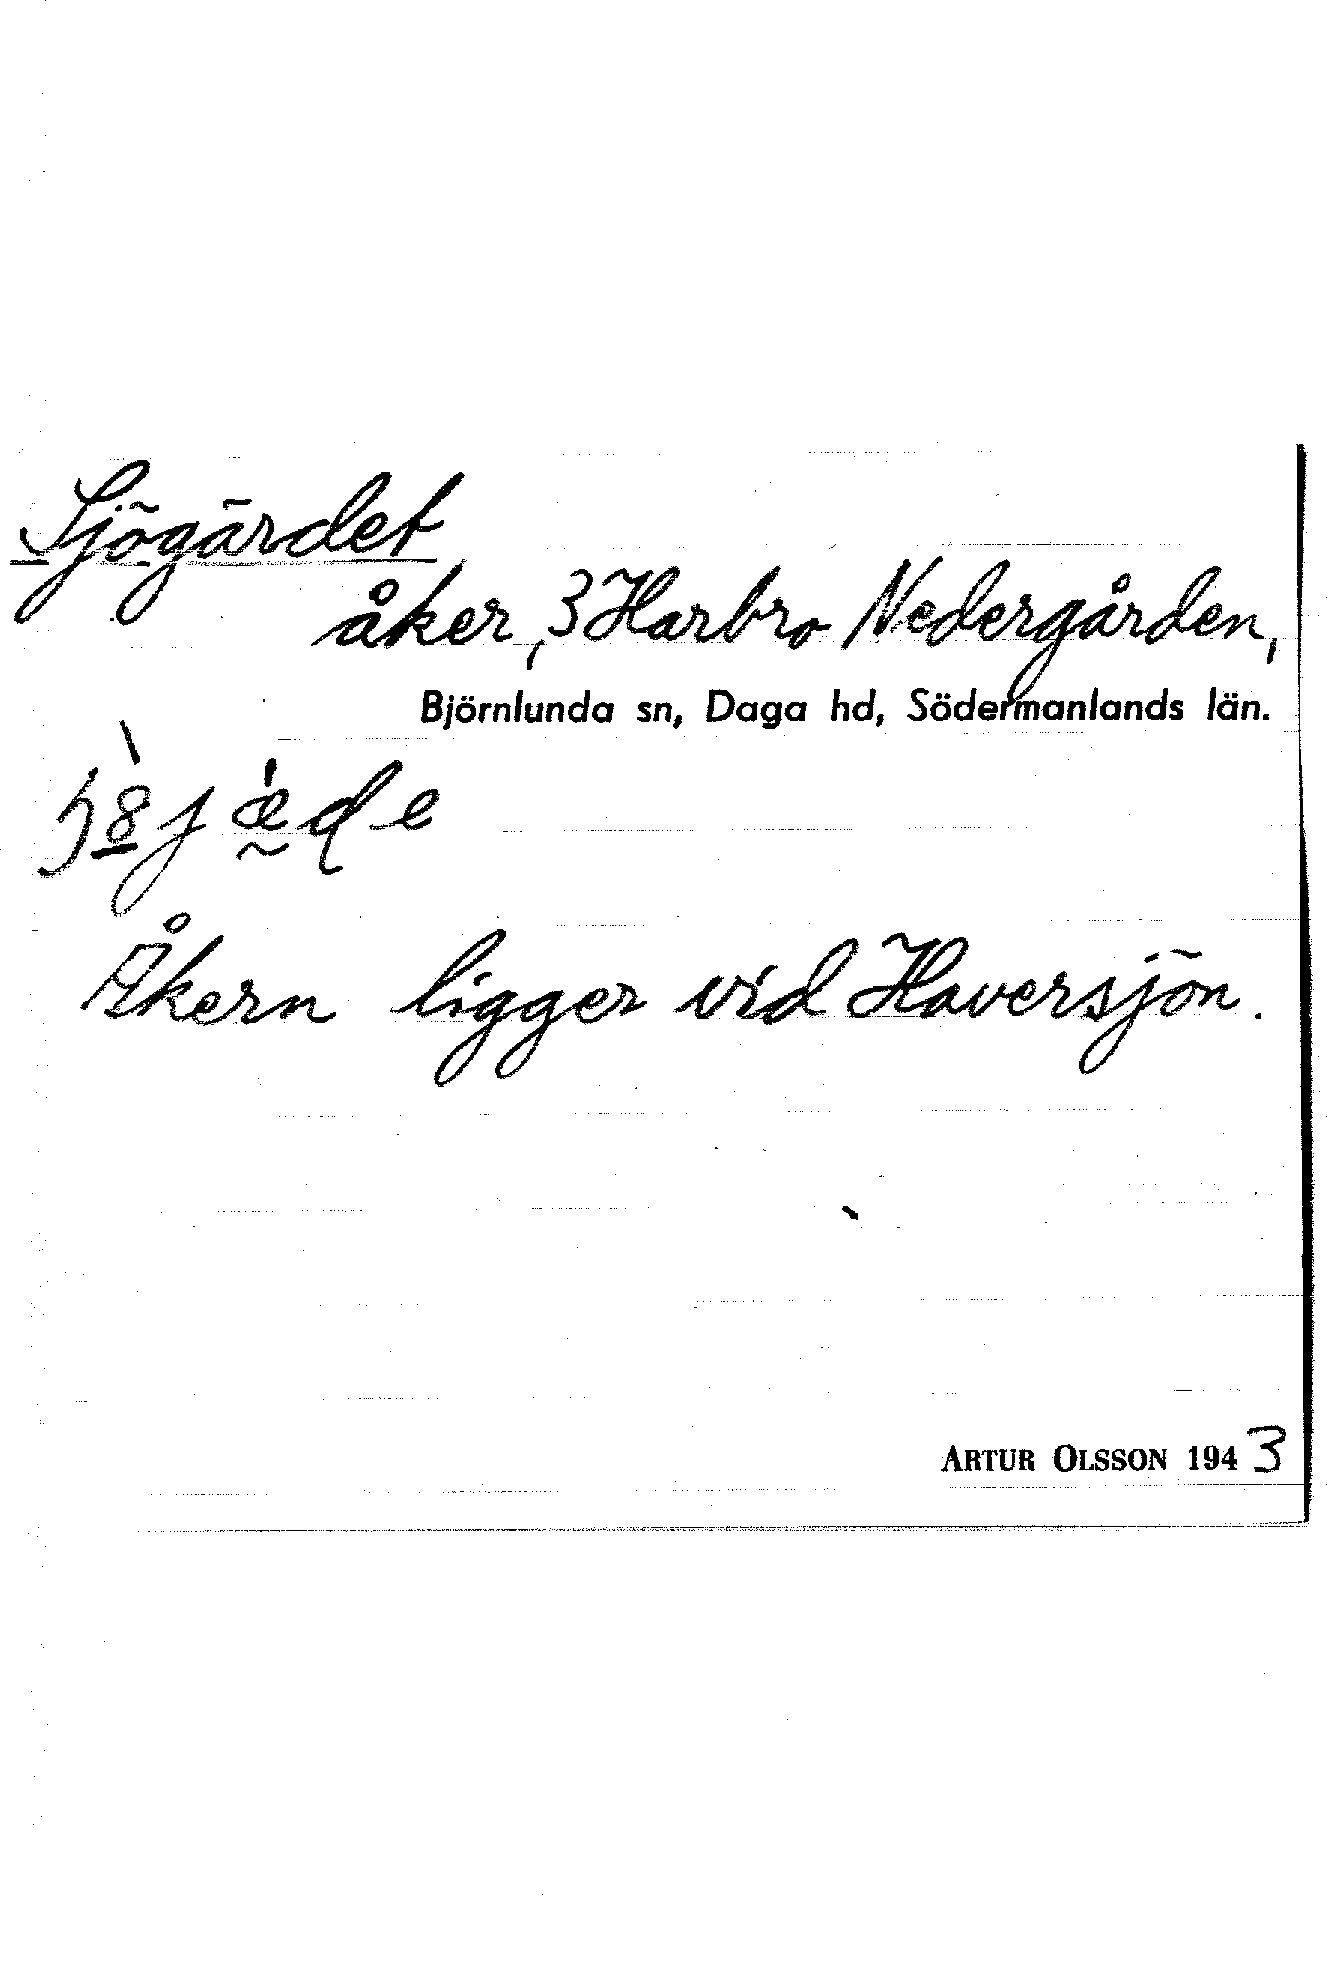 Sjögärdet
åker, 3 Harbro Nedergården,
Björnlunda sn, Daga hd, Södermanlands län.
Åkern ligger vid Haversjön.
ARTUR OLSSON 1943